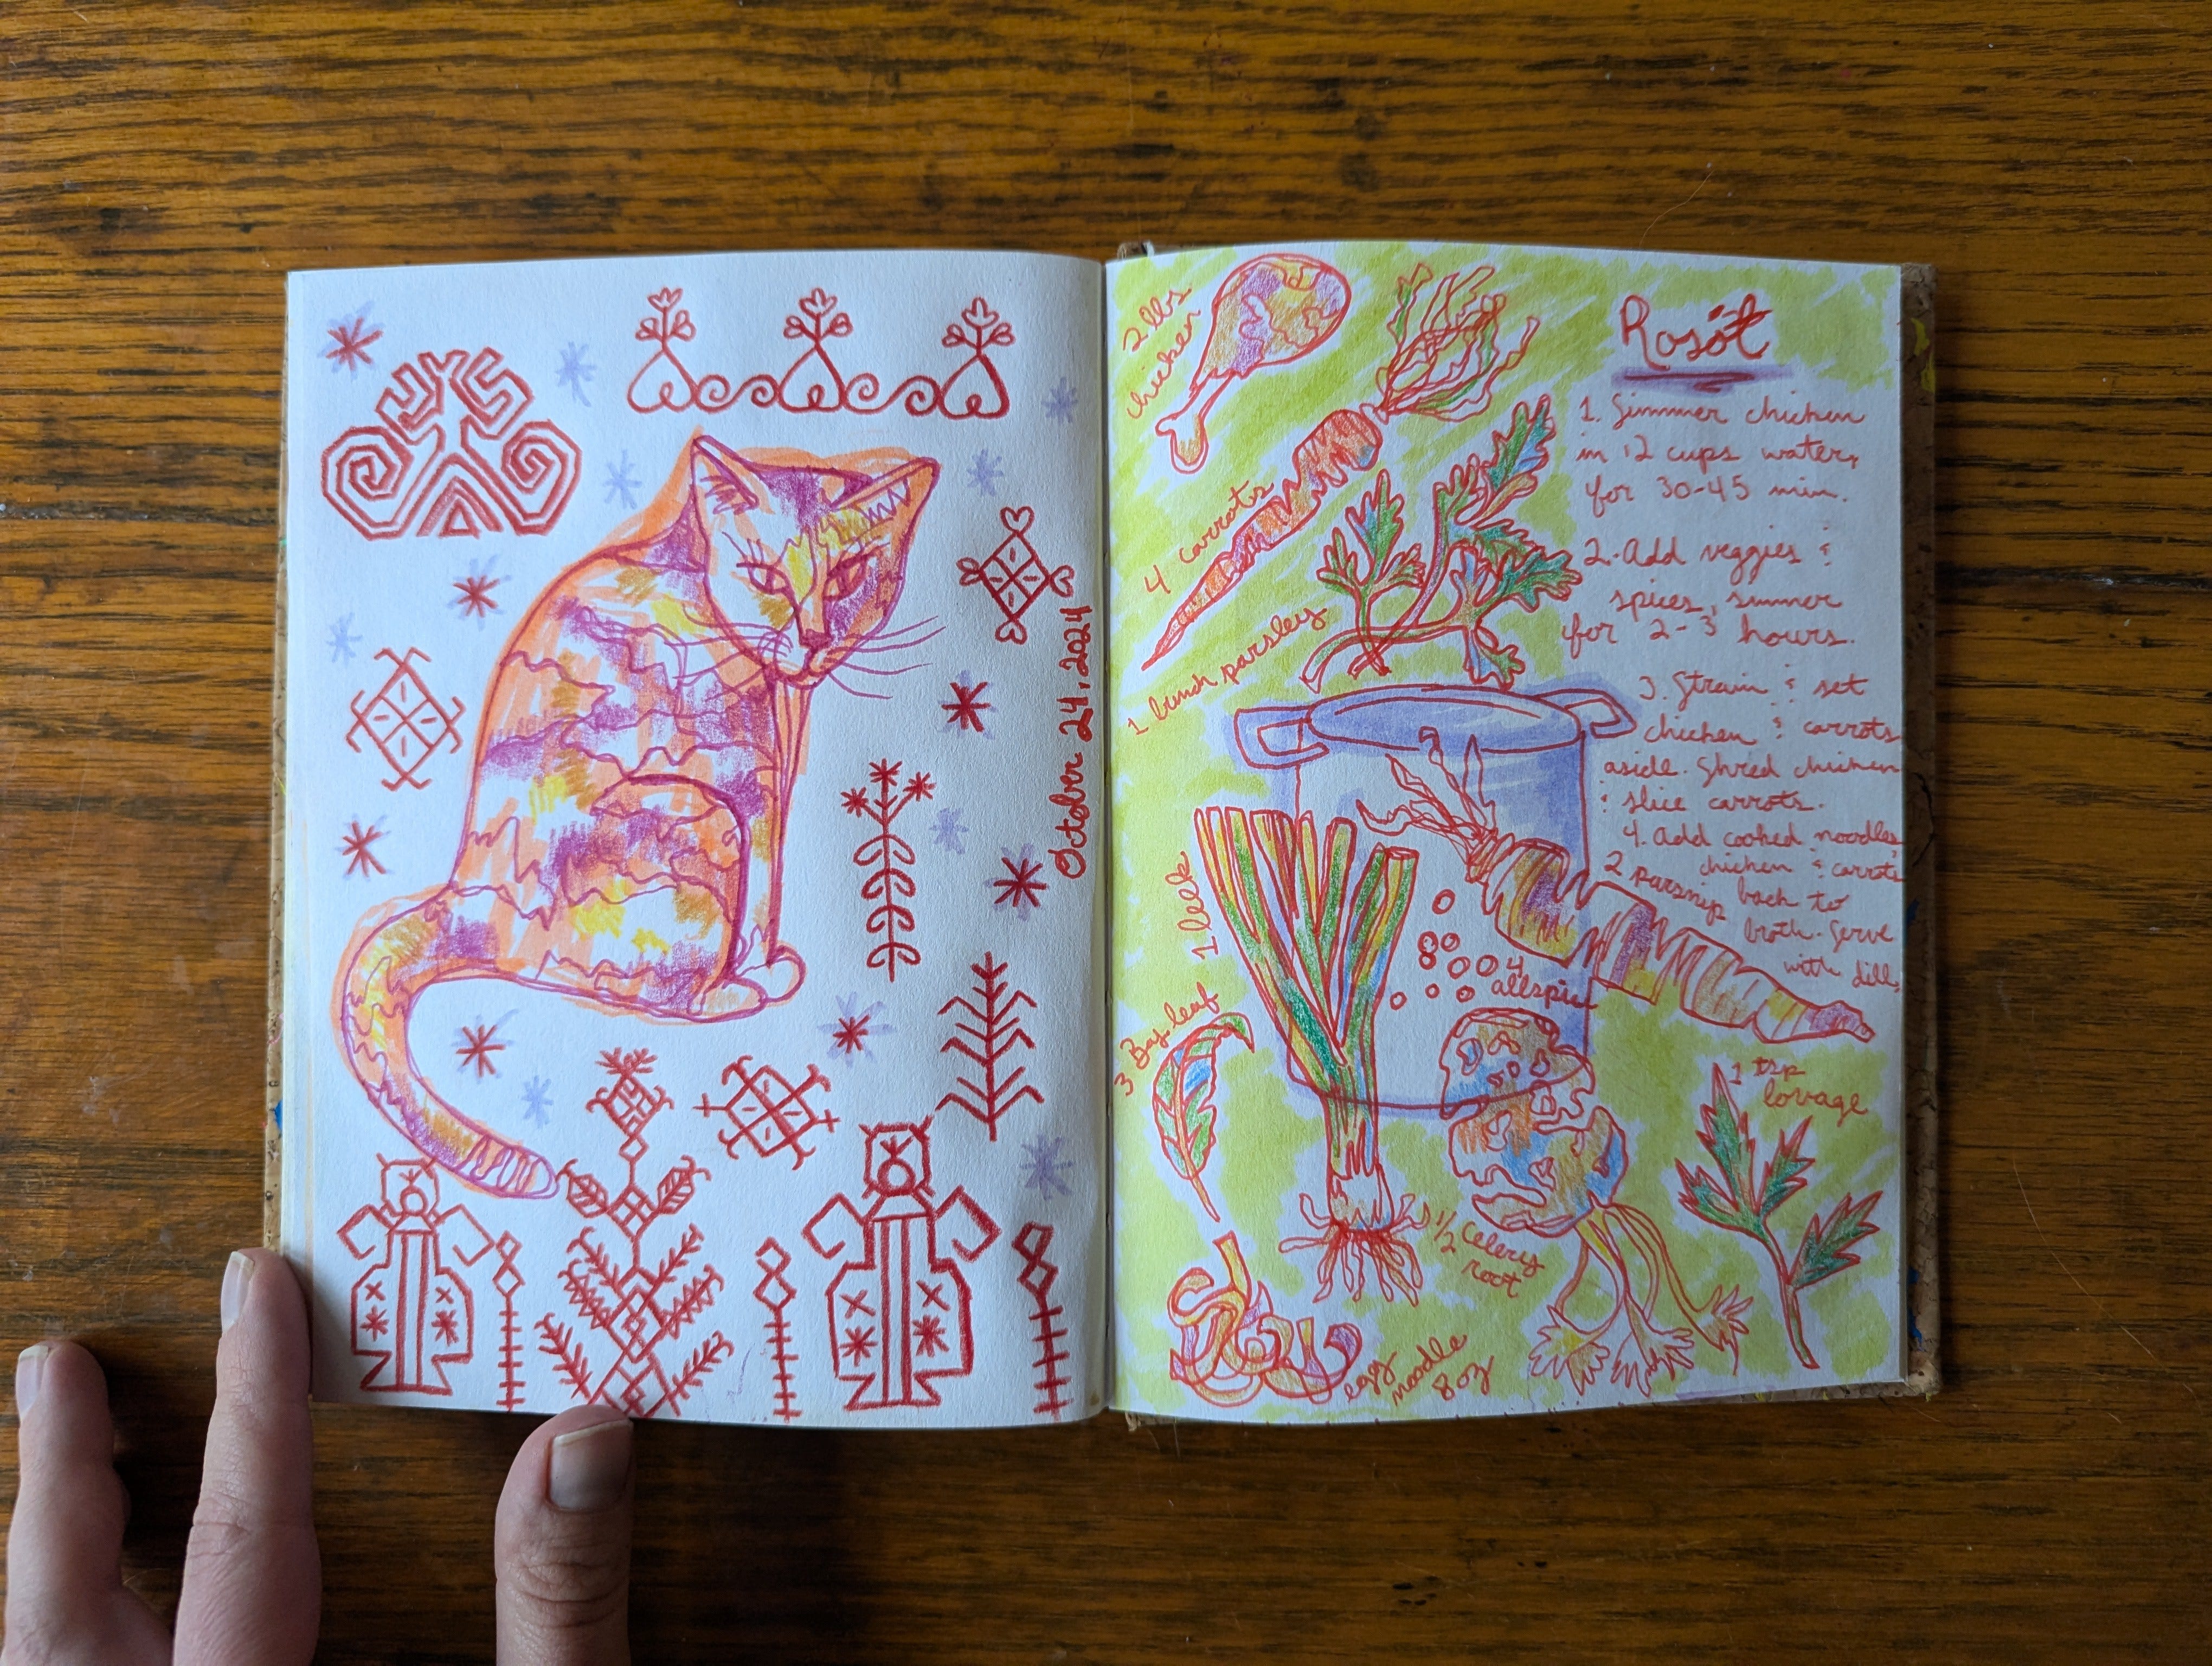 October 24, 2024
Rosół
2 lbs
chicken
4 carrots
1 bunch parsley
1 leek
3 Bay leaf
4
allspice
2 parsnip
1 tsp
lovage
1/2 Celery
root
egg
noodle
8 oz
1. Simmer chicken
in 12 cups water,
for 30-45 min.
2. Add veggies &
spices, simmer
for 2-3 hours.
3. Strain & set
chicken & carrots
aside. Shred chicken
& slice carrots.
4. Add cooked noodles,
chicken & carrots
back to
broth. Serve
with dill.